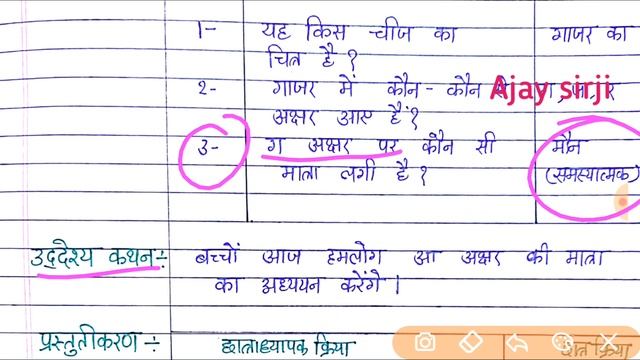 1- यह किस चीज का गाजर का
चित्र है ?
2- गाजर में कौन-कौन से
Ajay sirji
अक्षर आए हैं ?
3- ग अक्षर पर कौन सी मौन
मात्रा लगी है ? (समस्यात्मक)
उद्देश्य कथन :- बच्चों आज हमलोग आ अक्षर की मात्रा
का अध्ययन करेंगे ।
प्रस्तुतीकरण :- छात्राध्यापक क्रिया